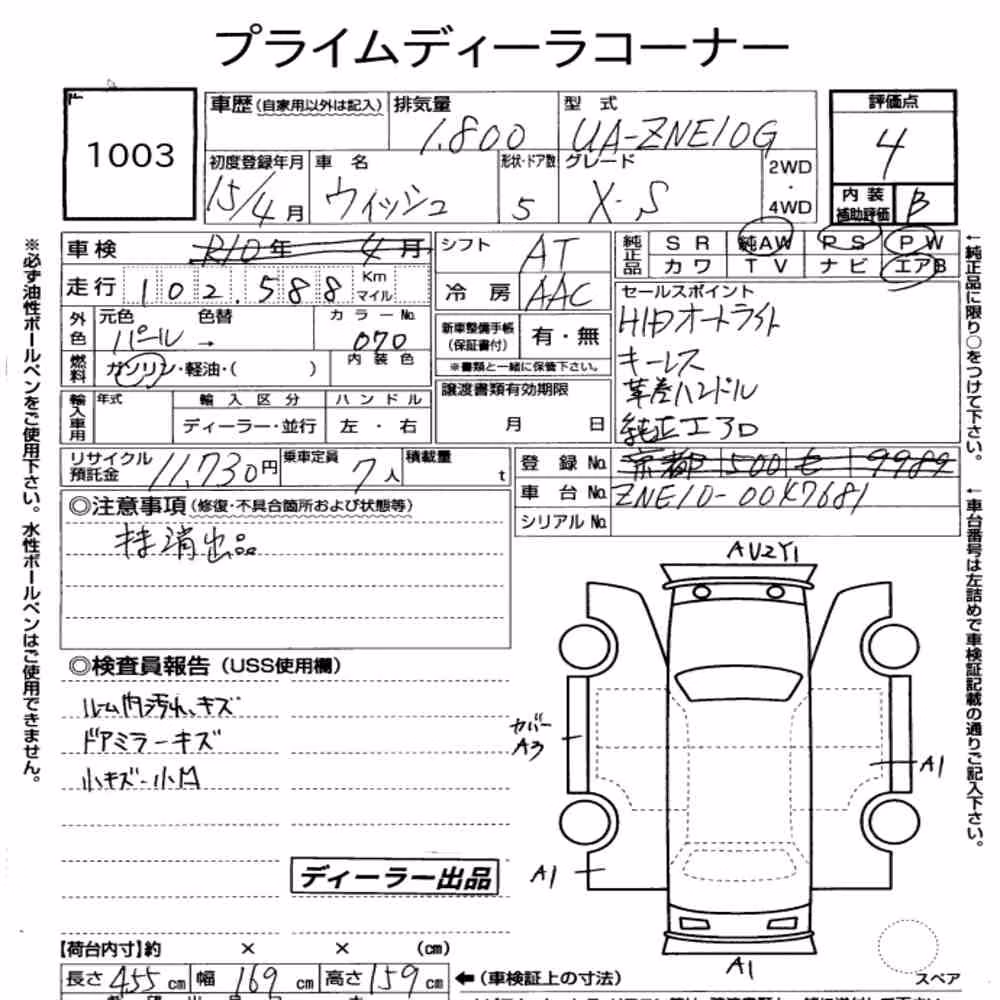 プライムディーラコーナー
1003
車歴 (自家用以外は記入)
排気量
1.800
型 式
UA-ZNE10G
評価点
4
初度登録年月
15/4月
車 名
ウィッシュ
形状・ドア数
5
グレード
X・S
2WD
・
4WD
内 装
補助評価
B
車検
R10年 4月
シフト
AT
純正品
SR 純AW PS PW
カワ TV ナビ エアB
走行
102.588
Km
マイル
冷 房
AAC
セールスポイント
HIDオートライト
キーレス
革巻ハンドル
純正エアロ
外色
元色 色替
パール →
カラーNo.
070
内装色
新車整備手帳
(保証書付)
有・無
※書類と一緒に保管下さい。
燃料
ガソリン・軽油・( )
輸入車用
年式
輸入区分
ディーラー・並行
ハンドル
左・右
譲渡書類有効期限
月 日
リサイクル
預託金
11,730円
乗車定員
7人
積載量
t
登録No.
京都 500 9989
車台No.
ZNE10-0047681
シリアルNo.
◎注意事項 (修復・不具合箇所および状態等)
抹消出品
◎検査員報告 (USS使用欄)
ルーム内汚れ、キズ
ドアミラーキズ
小キズ・小凹
ディーラー出品
AU2Y1
カバー
A3
A1
A1
A1
スペア
【荷台内寸】約 × × (cm)
長さ 455 cm 幅 169 cm 高さ 159 cm ←(車検証上の寸法)
※必ず油性ボールペンをご使用下さい。水性ボールペンはご使用できません。
←純正品に限り○をつけて下さい。
←車台番号は左詰めで車検証記載の通りご記入下さい。